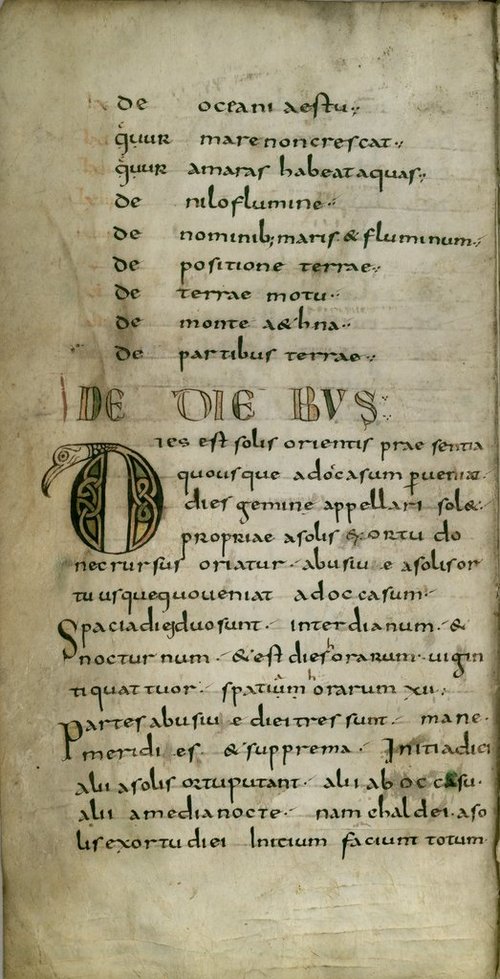 de oceani aestu
quur mare non crescat
quur amaras habeat aquas
de nilo flumine
de nominib; maris & fluminum
de positione terrae
de terrae motu
de monte aethna
de partibus terrae
I DE DIEBVS
Dies est solis orientis praesentia
quousque ad occasum perueniat
dies gemine appellari sol&
propriae a solis exortu do
nec rursus oriatur abusiue a solis or
tu usquequo ueniat ad occasum
Spacia diei duo sunt inter dianum &
nocturnum & est dies horarum uigin
ti quattuor spatium horarum xii
Partes abusiue diei tres sunt mane
meridies & supprema Initia diei
alii a solis ortu putant alii ab occasu
alii a media nocte nam chaldei a so
lis exortu diei Inicium faciunt totum